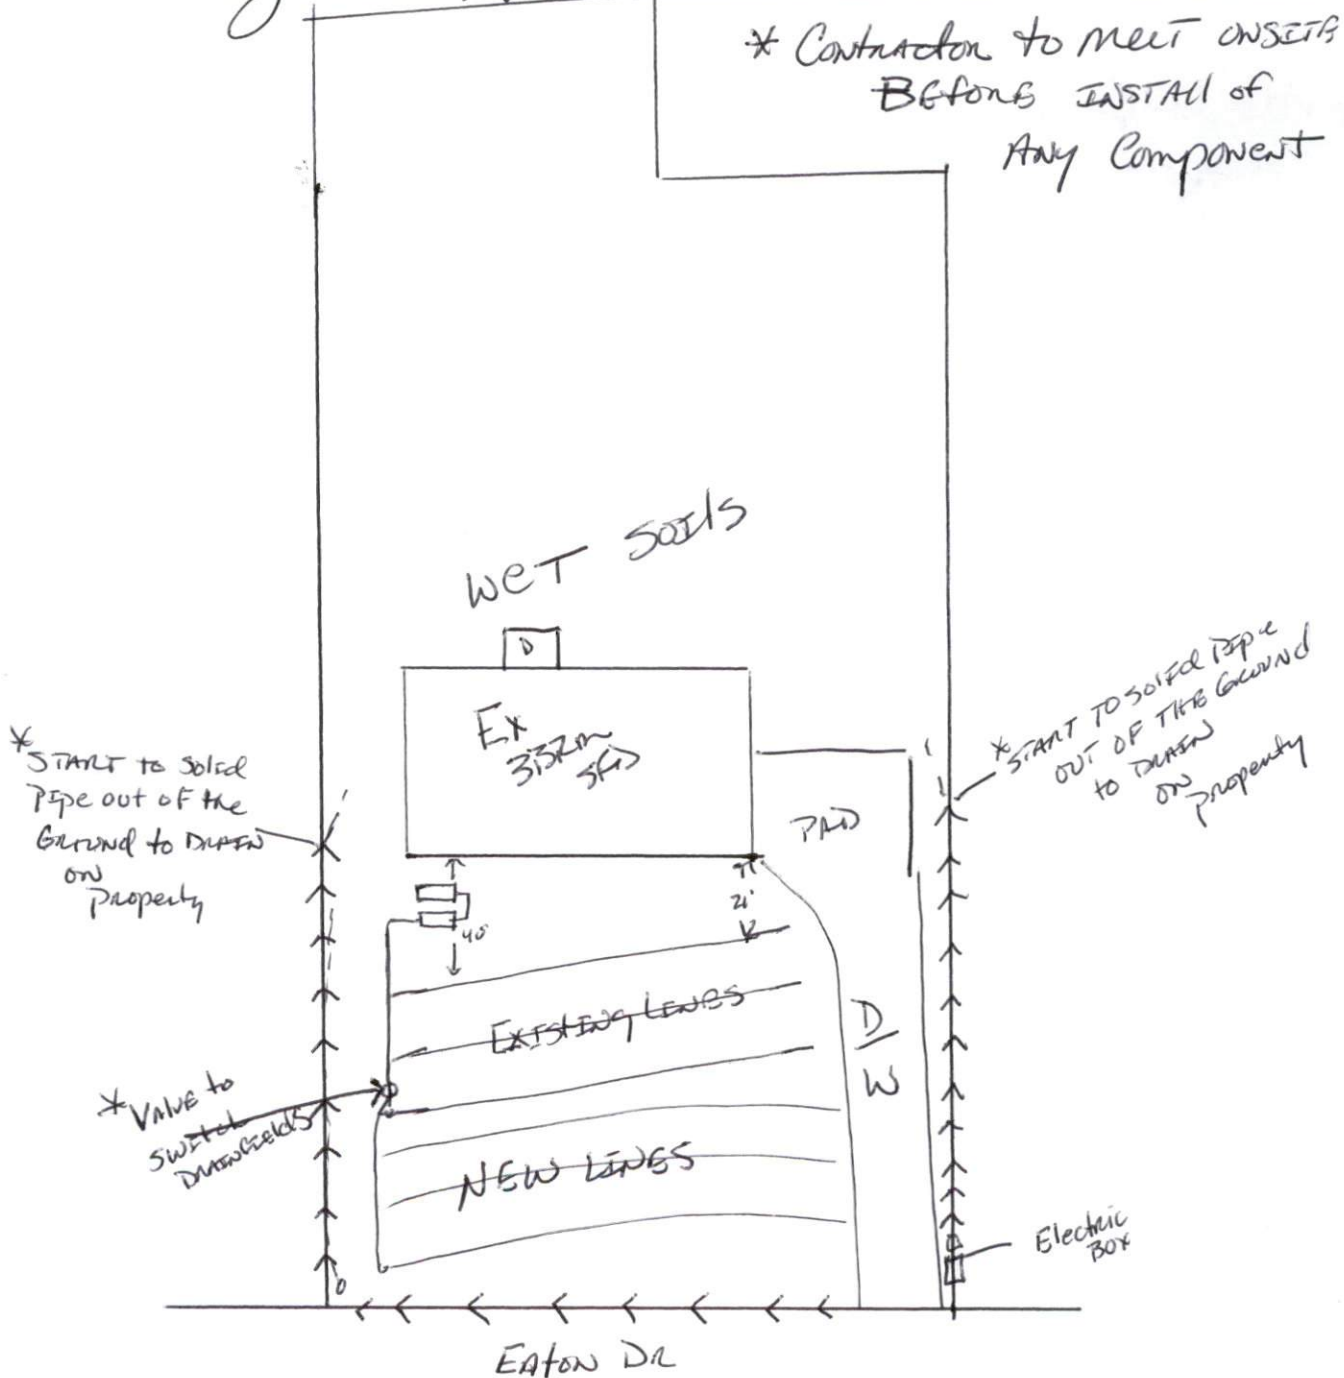 * Contractor to Meet ONSITE
BEFORE INSTALL of
ANY Component
WET SOILS
D
Ex
3BRm
SFD
* START to Solid
Pipe out of the
GROUND to DRAIN
on
Property
* START TO SOLID PIPE
OUT OF THE GROUND
to DRAIN
ON
property
PAD
21'
40'
EXISTING LINES
D/W
* VALVE to
SWITCH
DRAINFIELDS
NEW LINES
Electric
BOX
EATON DR